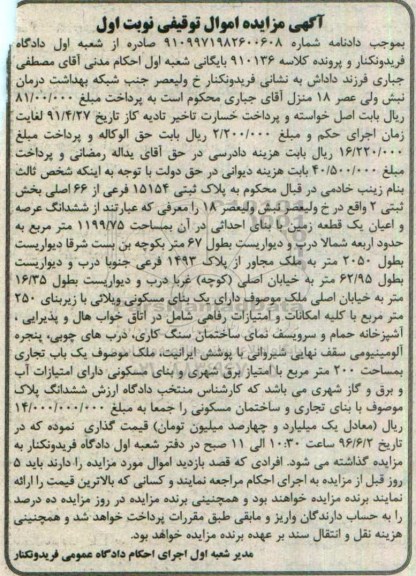 آگهی مزایده اموال توقیفی نوبت اول
بموجب دادنامه شماره ۹۱۰۹۹۷۱۹۸۲۶۰۰۶۰۸ صادره از شعبه اول دادگاه
فریدونکنار و پرونده کلاسه ۹۱۰۱۳۶ بایگانی شعبه اول احکام مدنی آقای مصطفی
جباری فرزند داداش به نشانی فریدونکنار خ ولیعصر جنب شبکه بهداشت درمان
نبش ولی عصر ۱۸ منزل آقای جباری محکوم است به پرداخت مبلغ ۸۱/۰۰۰/۰۰۰
ریال بابت اصل خواسته و پرداخت خسارت تاخیر تادیه کاز تاریخ ۹۱/۴/۲۷ لغایت
زمان اجرای حکم و مبلغ ۲/۲۰۰/۰۰۰ ریال بابت حق الوکاله و پرداخت مبلغ
۱۶/۲۲۰/۰۰۰ ریال بابت هزینه دادرسی در حق آقای یداله رمضانی و پرداخت
مبلغ ۴۰/۵۰۰/۰۰۰ بابت هزینه دیوانی در حق دولت با توجه به اینکه شخص ثالث
بنام زینب خادمی در قبال محکوم به پلاک ثبتی ۱۵۱۵۴ فرعی از ۶۶ اصلی بخش
ثبتی ۲ واقع در خ ولیعصر نبش ولیعصر ۱۸ را معرفی که عبارتند از ششدانگ عرصه
و اعیان یک قطعه زمین با بنای احداثی در آن بمساحت ۱۱۹۹/۷۵ متر مربع در
حدود اربعه شمالا درب و دیواریست بطول ۶۷ متر بکوچه بن بست شرقا دیواریست
بطول ۲۰۵۰ متر به ملک مجاور از پلاک ۱۴۹۳ فرعی جنوبا درب و دیواریست
بطول ۶۲/۹۵ متر به خیابان اصلی (کوچه) غربا درب و دیواریست بطول ۱۶/۳۵
متر به خیابان اصلی ملک موصوف دارای یک بنای مسکونی ویلائی با زیربنای ۲۵۰
متر مربع با کلیه امکانات و امتیازات رفاهی شامل دو اتاق خواب هال و پذیرایی ،
آشپزخانه حمام و سرویسف نمای ساختمان سنگ کاری، درب های چوبی، پنجره
آلومینیومی سقف نهایی شیروانی با پوشش ایرانیت، ملک موصوف یک باب تجاری
بمساحت ۲۰۰ متر مربع با امتیاز برق شهری و بنای مسکونی دارای امتیازات آب
و برق و گاز شهری می باشد که کارشناس منتخب دادگاه ارزش ششدانگ پلاک
موصوف با بنای تجاری و ساختمان مسکونی را جمعا به مبلغ ۱۴/۰۰۰/۰۰۰/۰۰۰
ریال (معادل یک میلیارد و چهارصد میلیون تومان) قیمت گذاری نموده که در
تاریخ ۹۶/۶/۲ ساعت ۱۰:۳۰ الی ۱۱ صبح در دفتر شعبه اول دادگاه فریدونکنار به
مزایده گذاشته می شود. افرادی که قصد بازدید اموال مورد مزایده را دارند باید ۵
روز قبل از مزایده به اجرای احکام مراجعه نمایند و کسانی که بالاترین قیمت را ارائه
نمایند برنده مزایده خواهند بود و همچنینی برنده مزایده در روز مزایده ده درصد
را به حساب دارندگان واریز و مابقی طبق مقررات پرداخت خواهد شد و همچنینی
هزینه نقل و انتقال سند بر عهده برنده مزایده خواهد بود.
مدیر شعبه اول اجرای احکام دادگاه عمومی فریدونکنار